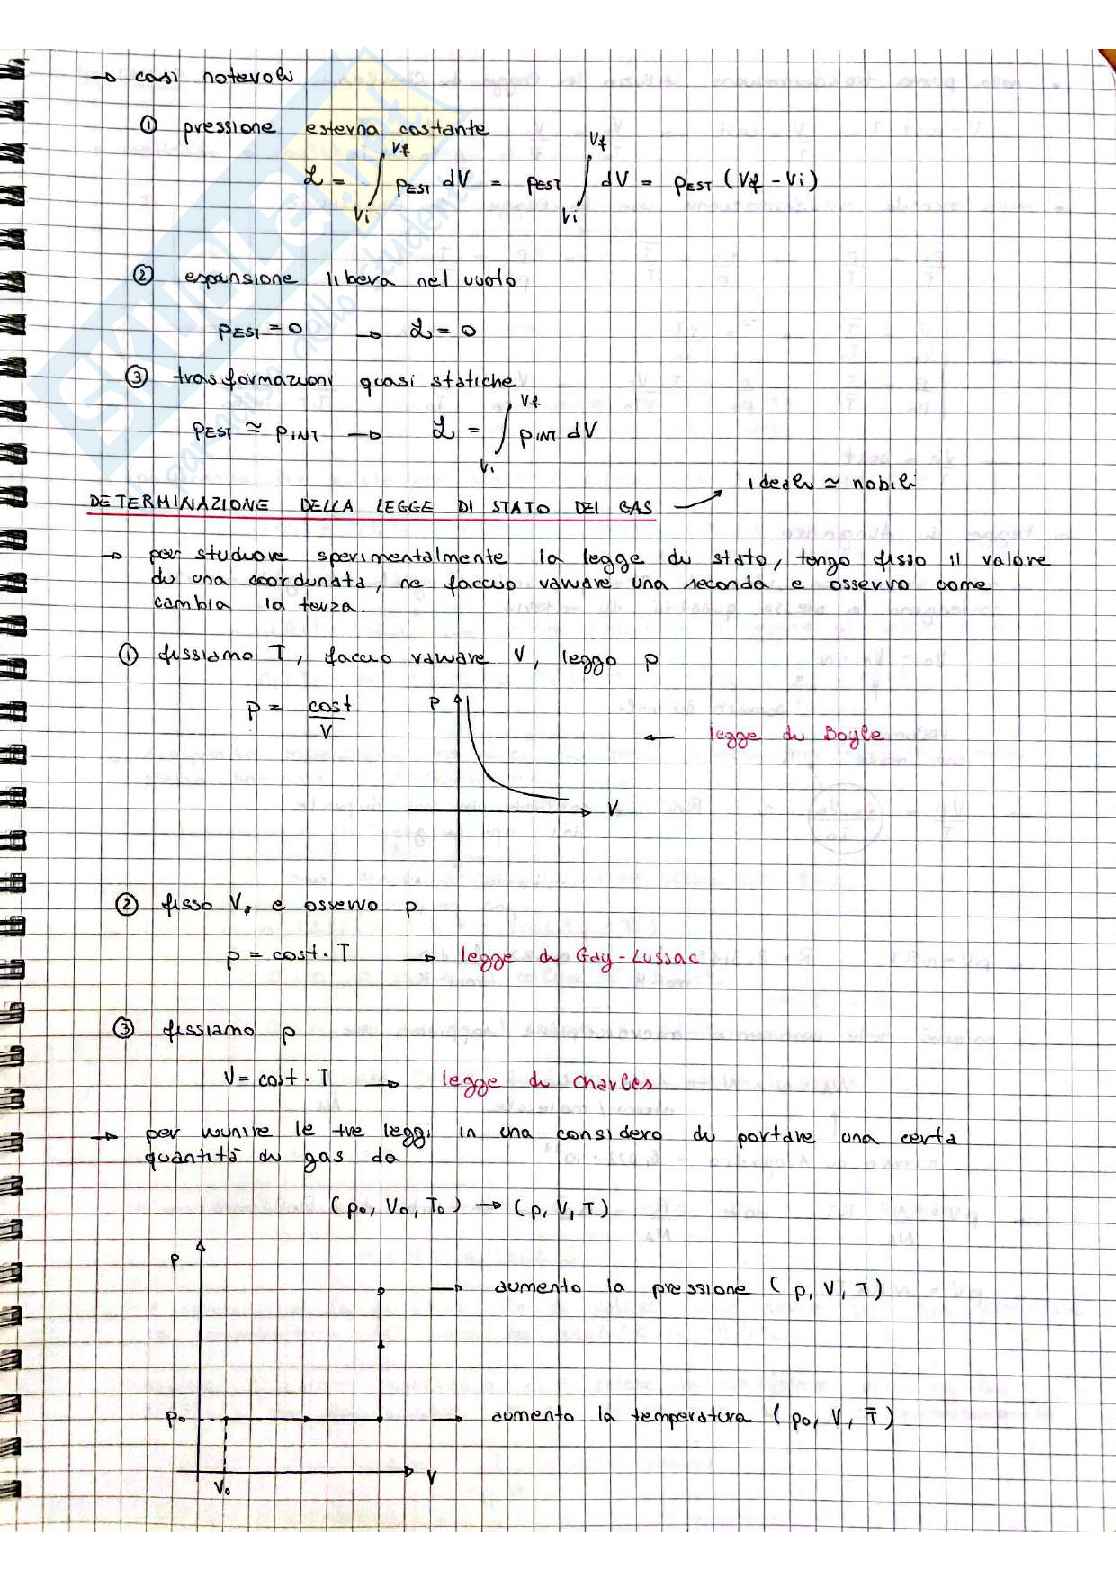 → casi notevoli
① pressione esterna costante
L = ∫ Vi Vf pEST dV = pEST ∫ Vi Vf dV = pEST (Vf - Vi)
② espansione libera nel vuoto
pEST = 0 → L = 0
③ trasformazioni quasi statiche
pEST ≃ pINT → L = ∫ Vi Vf pINT dV
DETERMINAZIONE DELLA LEGGE DI STATO DEI GAS → ideali ≃ nobili
→ per studiare sperimentalmente la legge di stato, tengo fisso il valore
di una coordinata, ne faccio variare una seconda e osservo come
cambia la terza.
① fissiamo T, faccio variare V, leggo p
p = cost / V
p
V
← legge di Boyle
② fisso V, e osservo p
p = cost · T → legge di Gay-Lussac
③ fissiamo p
V = cost · T → legge di Charles
→ per riunire le tre leggi in una considero di portare una certa
quantità di gas da
(p₀, V₀, T₀) → (p, V, T)
p
→ aumento la pressione (p, V, T)
p₀
→ aumento la temperatura (p₀, V, T̄)
V₀
V